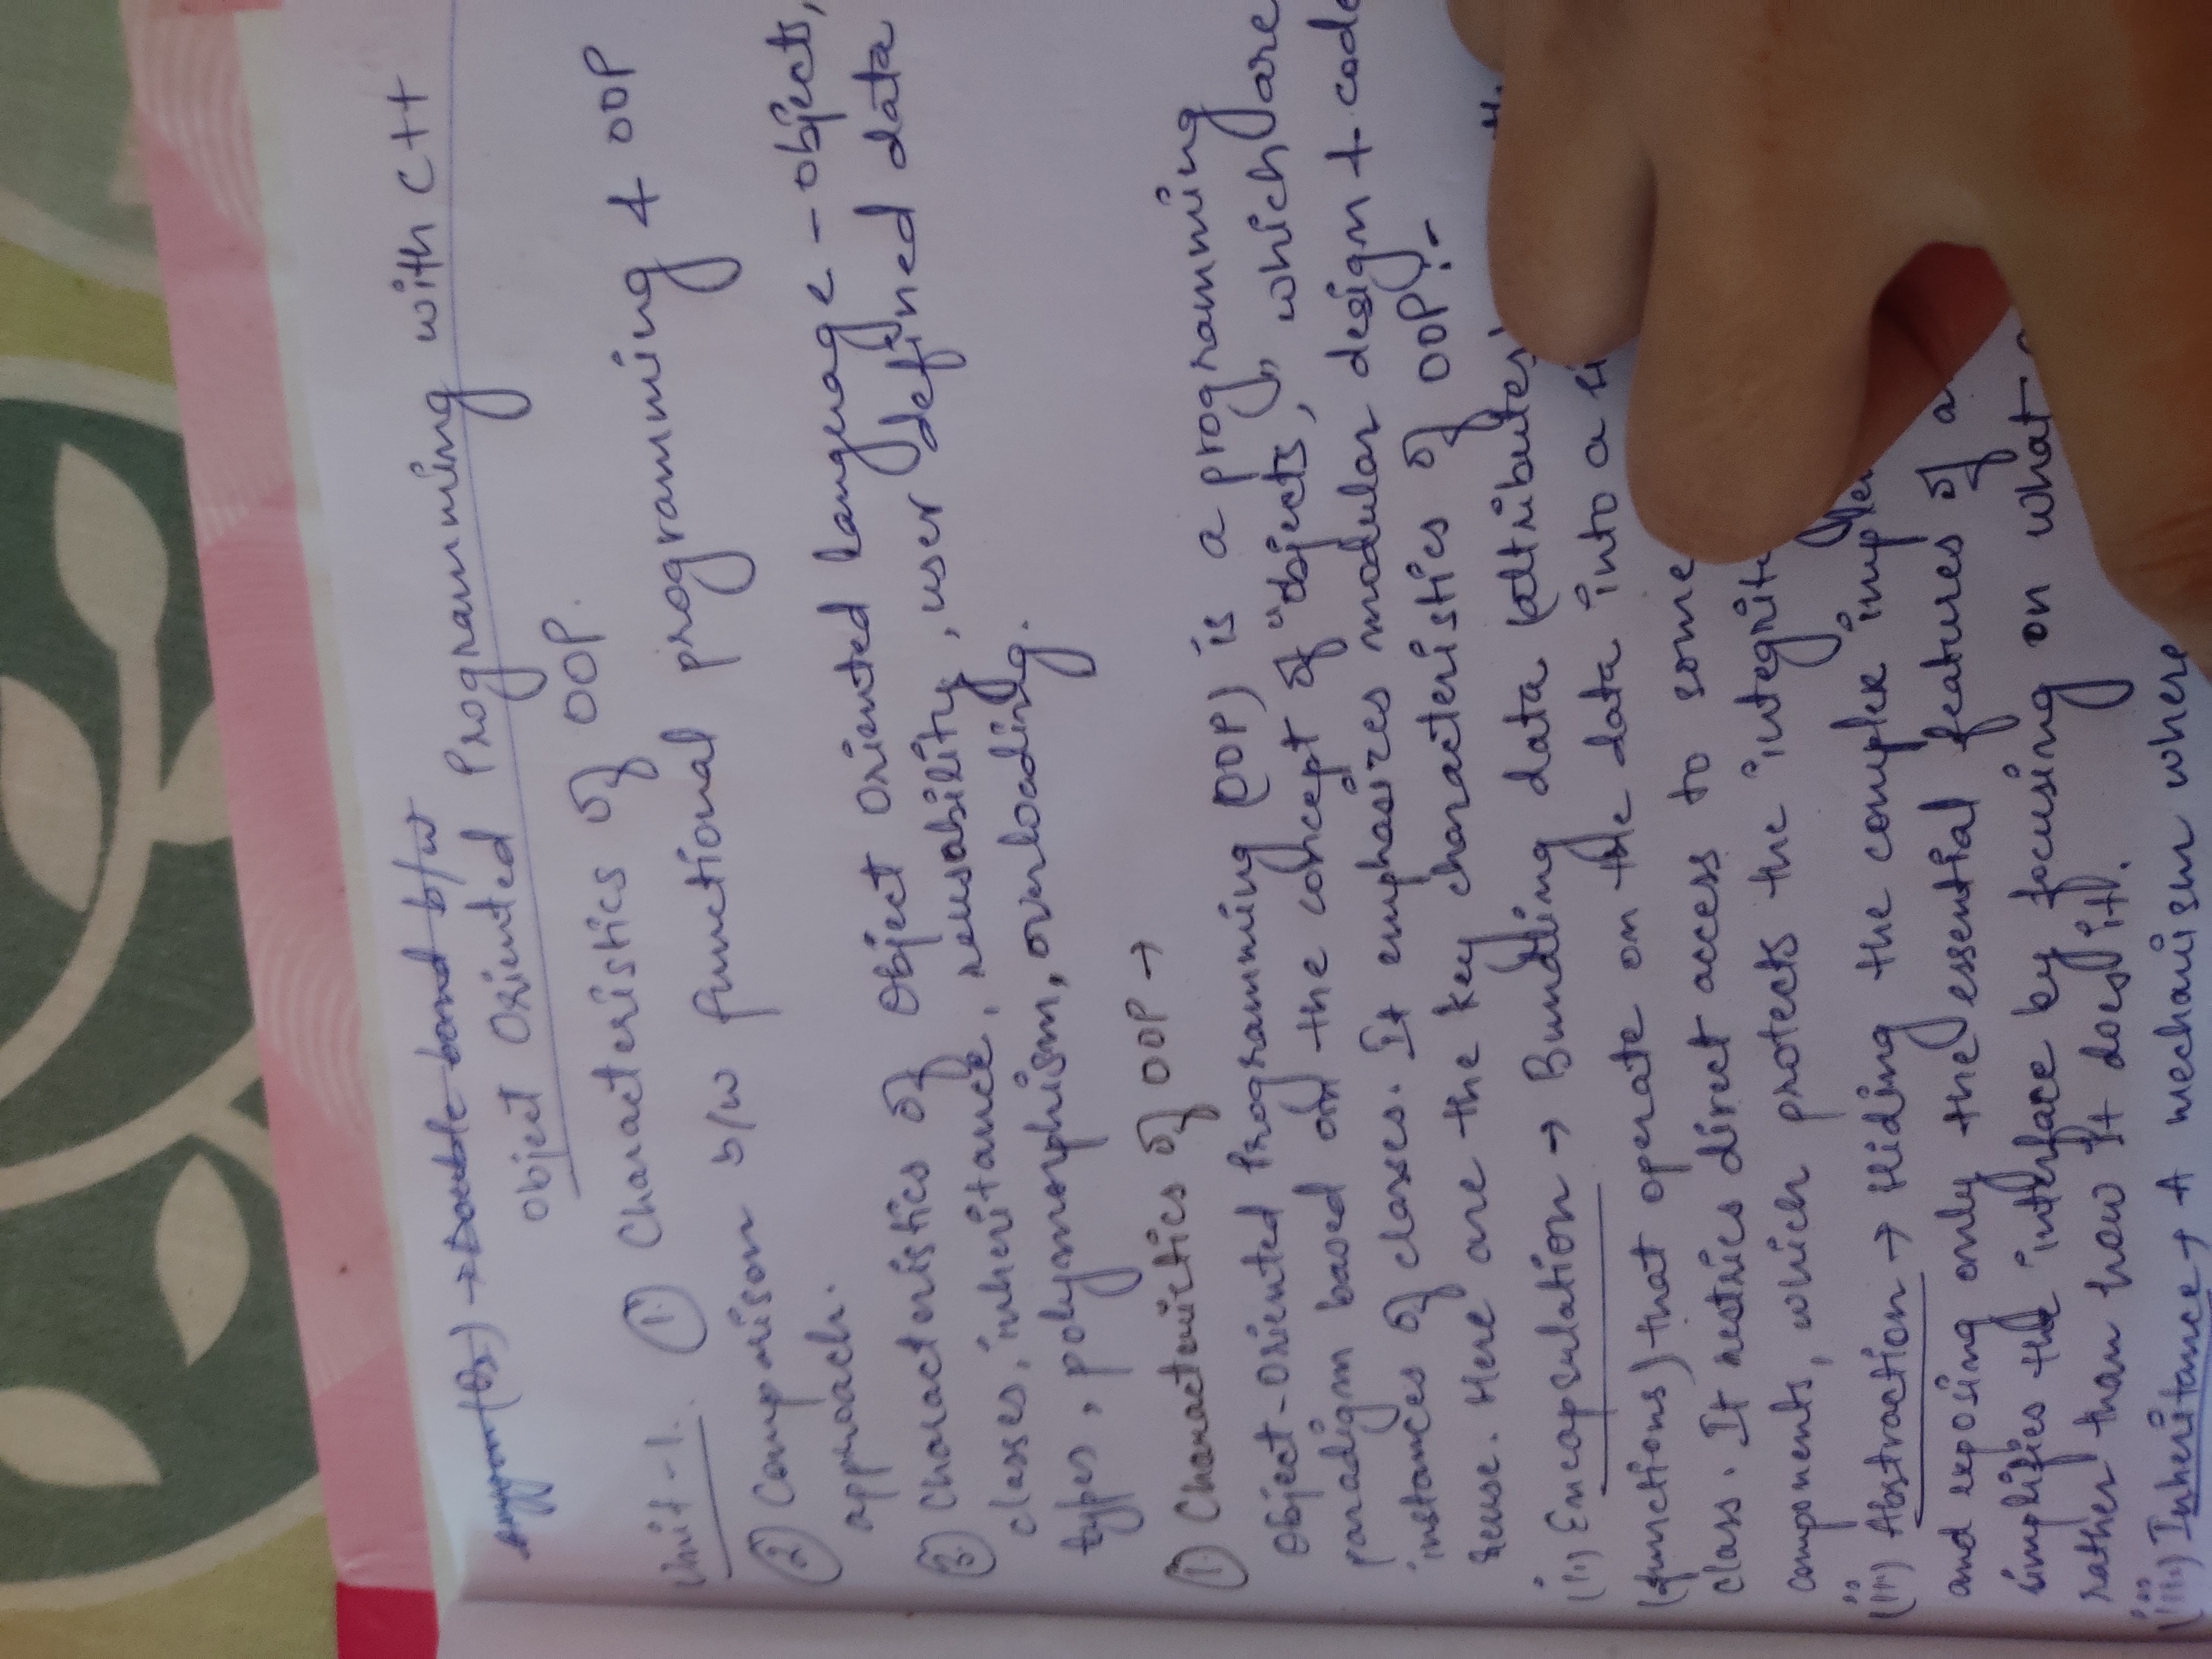 oxygen (O2) → Double bond b/w
Object Oriented Programming with C++
Unit-1. ① Characteristics of OOP.
② Comparison b/w functional programming & OOP
approach.
③ Characteristics of Object Oriented language - objects,
classes, inheritance, reusability, user defined data
types, polymorphism, overloading.
① Characteristics of OOP →
Object-Oriented Programming (OOP) is a programming
paradigm based on the concept of "objects," which are
instances of classes. It emphasizes modular design & code
reuse. Here are the key characteristics of OOP:-
(i.) Encapsulation → Bundling data (attributes)
(functions) that operate on the data into a
class. It restrics direct access to some
components, which protects the integrity
(ii) Abstraction → Hiding the complex
and exposing only the essential features of
simplifies the interface by focusing on what
rather than how it does it.
(iii.) Inheritance → A mechanism where